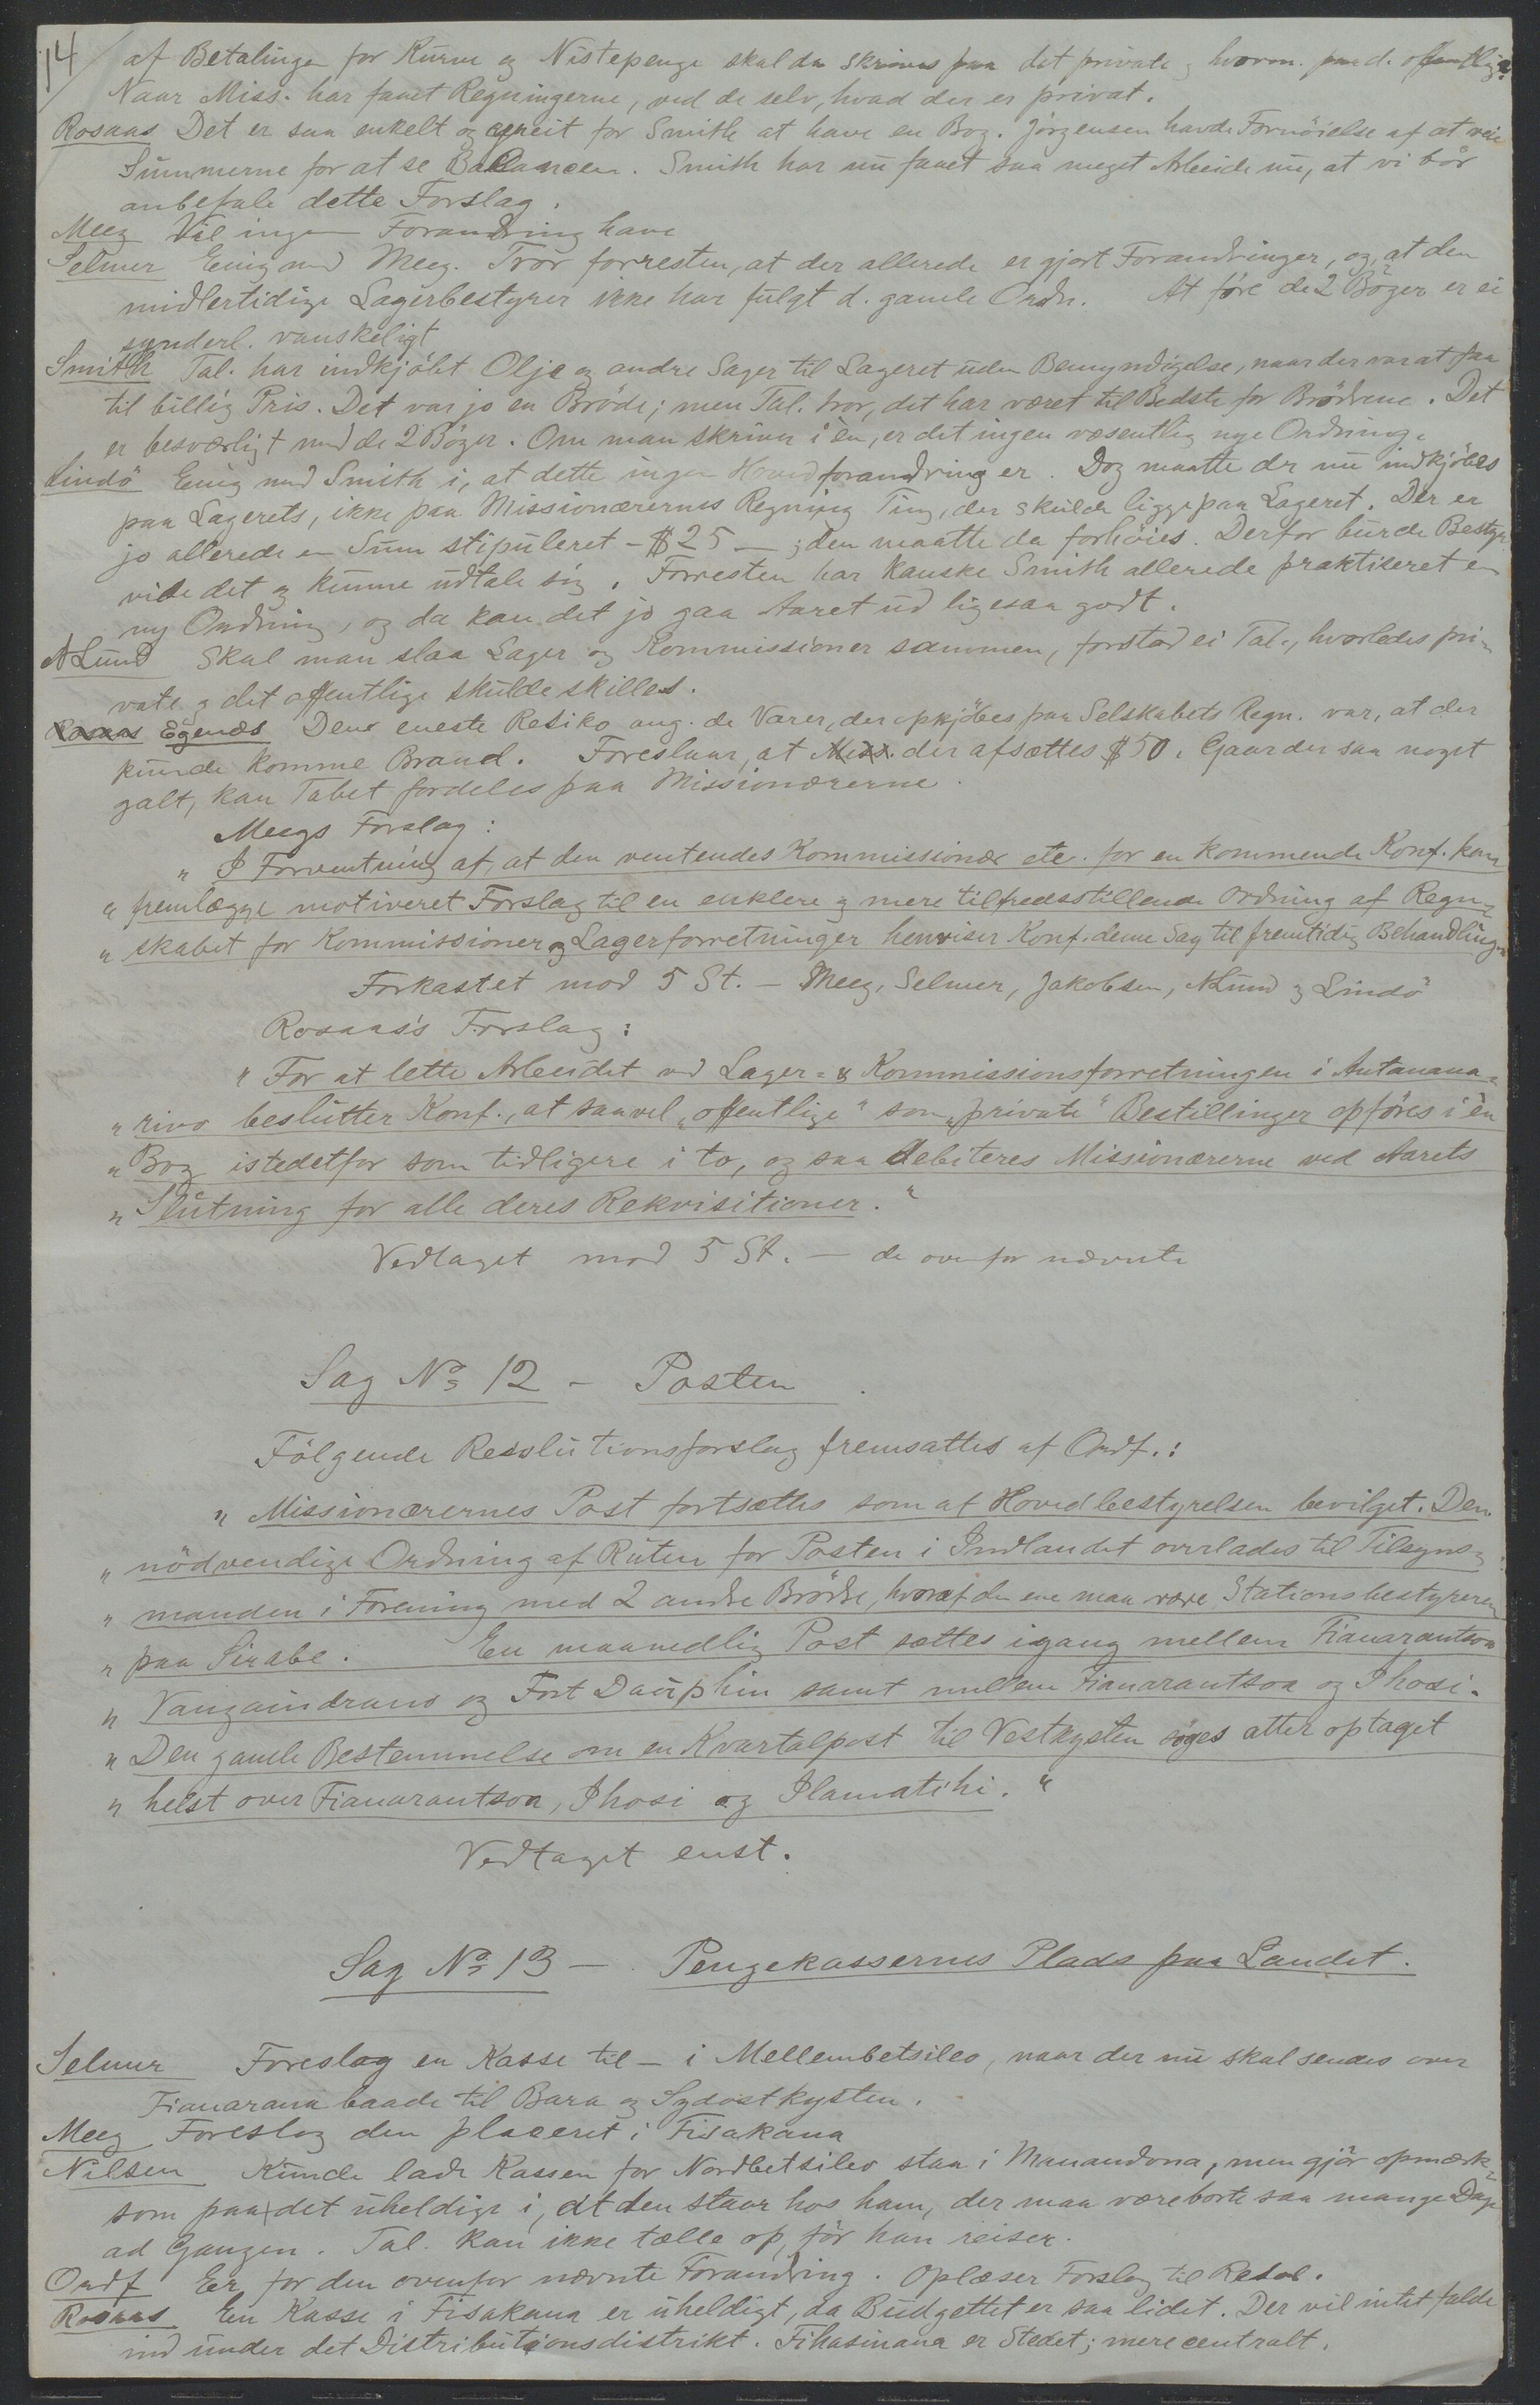 14
af Betalinger for Kurve og Nistepenge skal da skrives paa det private og hvorm. paa d. offentlige?
Naar Miss. har faaet Regningerne, ved de selv, hvad der er privat.
Rosaas Det er saa enkelt og greit for Smith at have en Bog. Jörgensen havde Fornöielse af at veie
Summerne for at se Balancen. Smith har nu faaet saa meget Arbeide nu, at vi bör
anbefale dette Forslag.
Meeg Vil ingen Forandring have
Selmer Enig med Meeg. Tror forresten, at der allerede er gjort Forandringer, og at den
midlertidige Lagerbestyrer ikke har fulgt d. gamle Ordn. At före de 2 Böger er ei
synderl. vanskeligt
Smith Tal. har indkjöbt Olje og andre Sager til Lageret uden Bemyndigelse, naar der var at faa
til billig Pris. Det var jo en Bröde; men Tal. tror, det har været til Bedste for Brödrene. Det
er besværligt med de 2 Böger. Om man skriver i èn, er det ingen væsentlig nye Ordning.
Lindö Enig med Smith i, at dette ingen Hovedforandring er. Dog maatte der nu indkjöbes
paa Lagerets, ikke paa Missionærernes Regning Ting, der skulde ligge paa Lageret. Der er
jo allerede en Sum stipuleret - $ 25 - ; den maatte da forhöies. Derfor burde Bestyr.
vide det og kunne udtale sig. Forresten har kanske Smith allerede praktiseret en
ny Ordning, og da kan det jo gaa Aaret ud ligesaa godt.
A Lund Skal man slaa Lager og Kommissioner sammen, forstod ei Tal., hvorledes pri-
vate og det offentlige skulde skilles.
Rosaas Egenæs Den eneste Resiko ang. de Varer, der opkjöbes paa Selskabets Regn. var, at der
kunde komme Brand. Foreslaar, at Miss. der afsættes $ 50. Gaar der saa noget
galt, kan Tabet fordeles paa Missionærerne.
Meegs Forslag:
" I Forventning af, at den ventendes Kommissionær etc. for en kommende Konf. kan
" fremlægge motiveret Forslag til en enklere og mere tilfredsstillende Ordning af Regn-
" skabet for Kommissioner og Lagerforretninger henviser Konf. denne Sag til fremtidig Behandling"
Forkastet mod 5 St. - Meeg, Selmer, Jakobsen, A Lund og Lindö
Rosaas's Forslag:
" For at lette Arbeidet ved Lager- & Kommissionsforretningen i Antanana-
" rivo beslutter Konf., at saavel "offentlige" som "private" Bestillinger opföres i èn
" Bog istedetfor som tidligere i to, og saa debiteres Missionærerne ved Aarets
" Slutning for alle deres Rekvisitioner."
Vedtaget mod 5 St. - de ovenfor nævnte
Sag No 12 - Posten
Fölgende Resolutionsforslag fremsattes af Ordf.:
" Missionærernes Post fortsættes som af Hovedbestyrelsen bevilget. Den
" nödvendige Ordning af Ruten for Posten i Indlandet overlades til Tilsyns-
" manden i Forening med 2 andre Brödre, hvoraf den ene maa være Stationsbestyreren
" paa Sirabe. En maanedlig Post sættes igang mellem Fianarantsoa
" Vangaindrano og Fort Dauphin samt mellem Fianarantsoa og Ihosi.
" Den gamle Bestemmelse om en Kvartalpost til Vestkysten söges atter optaget
" helst over Fianarantsoa, Ihosi og Ilamatihi."
Vedtaget enst.
Sag No 13 - Pengekassernes Plads paa Landet.
Selmer Foreslog en Kasse til - i Mellembetsileo, naar der nu skal sendes over
Fianarana baade til Bara og Sydostkysten.
Meeg Foreslog den placeret i Fisakana
Nilsen Kunde lade Kassen for Nordbetsileo staa i Manandona, men gjör opmærk-
som paa det uheldige i, at den staar hos ham, der maa være borte saa mange Dage
ad Gangen. Tal. kan ikke tælle op, för han reiser.
Ordf Er for den ovenfor nævnte Forandring. Oplæser Forslag til Resol.
Rosaas En Kasse i Fisakana er uheldigt, da Budgettet er saa lidet. Der vil intet falde
ind under det Distributionsdistrikt. Fihasinana er Stedet; mere centralt.